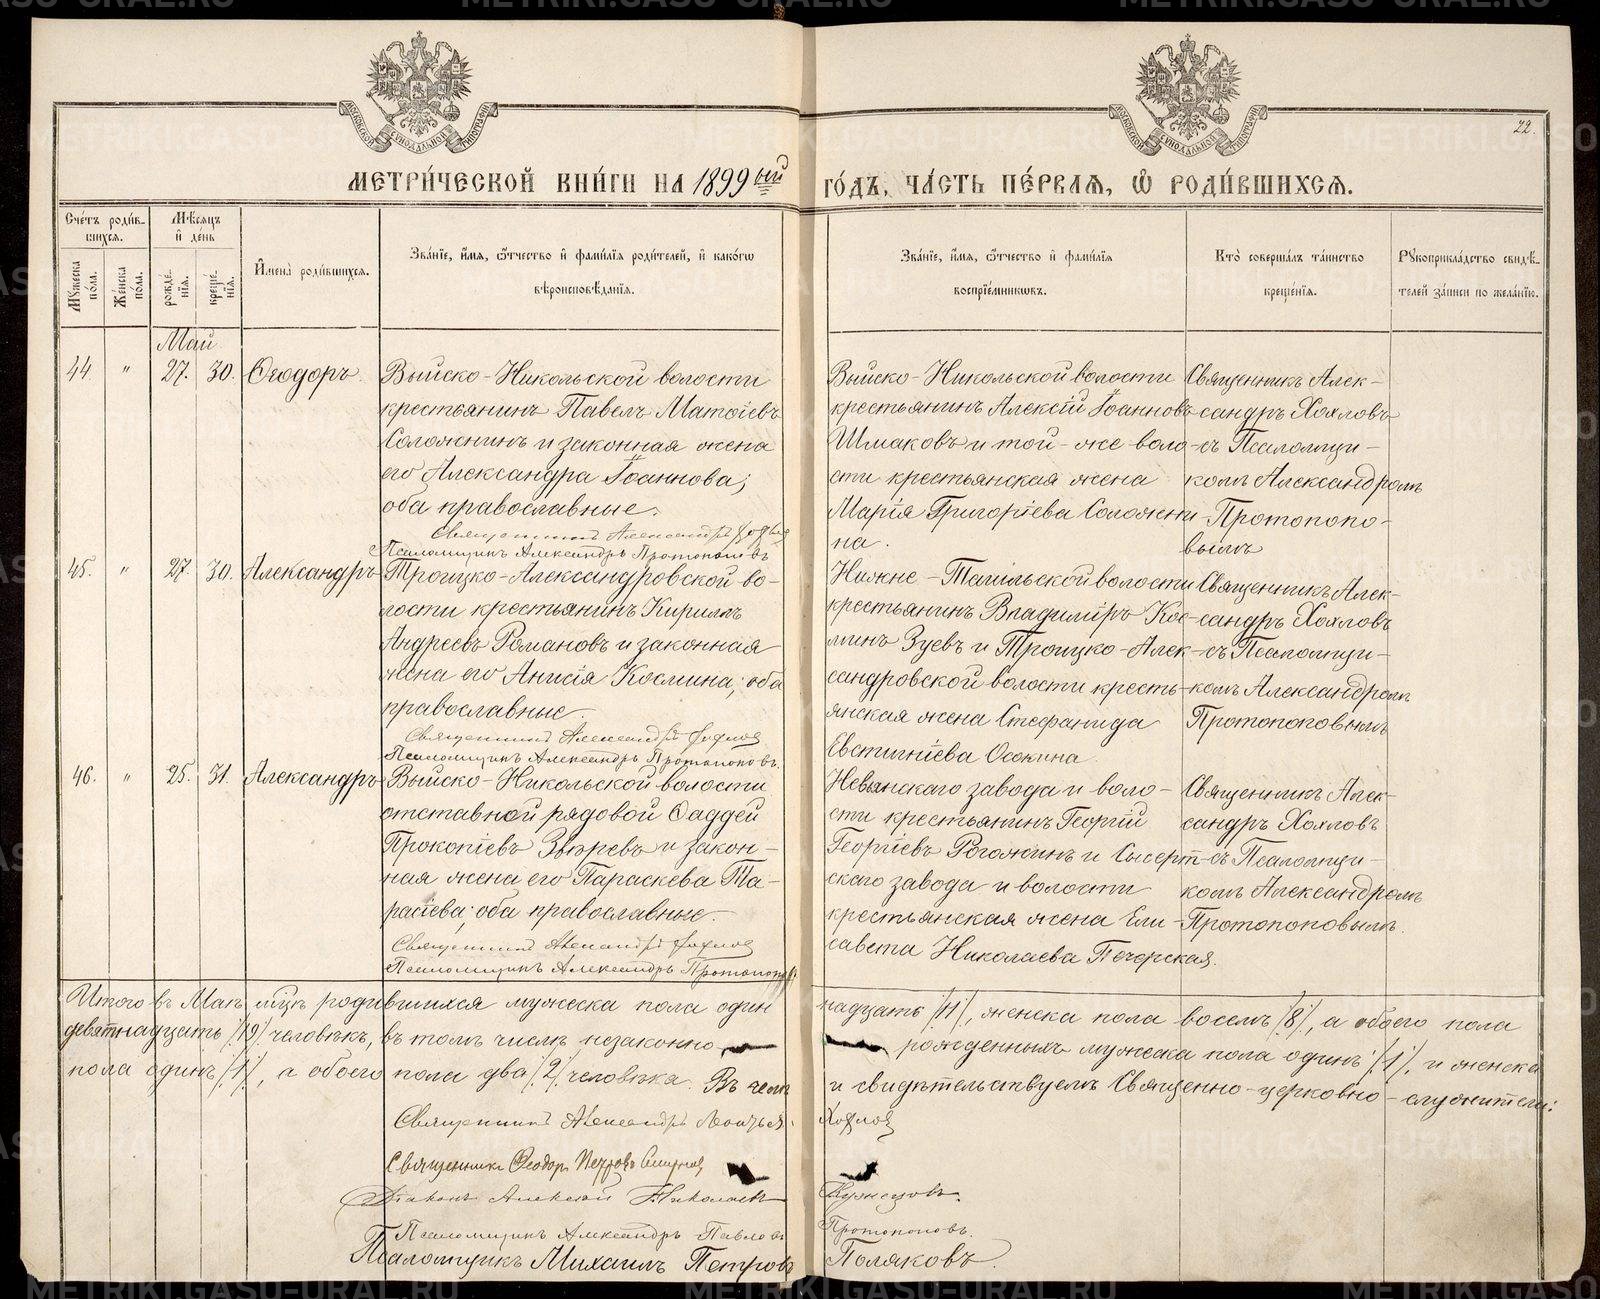 22.
МЕТРИ́ЧЕСКОЙ КНИ́ГИ НА 1899ый ГО́ДЪ, ЧА́СТЬ ПЕ́РВАЯ, Ѿ РОДИ́ВШИХСЯ.
Сче́тъ роди́вшихся.
Му́жеска по́ла.
Же́нска по́ла.
Мѣ́сяцъ и де́нь
рожде́нія.
креще́нія.
Имена̀ роди́вшихся.
Зва́ніе, и́мя, ѻ́тчество и фами́лія роди́телей, и како́гѡ
вѣроисповѣ́данія.
Зва́ніе, и́мя, ѻ́тчество и фами́лія
воспріе́мниковъ.
Кто̀ соверша́лъ та́инство
креще́нія.
Рукоприкла́дство свидѣ́-
телей за́писи по жела́нію.
Май
44 " 27. 30. Ѳеодоръ.
Выйско-Никольской волости
крестьянинъ Павелъ Матѳіевъ
Соложнинъ и законная жена
его Александра Іоаннова;
оба православные.
Священникъ Александръ Хохловъ
Псаломщикъ Александръ Протопоповъ
Выйско-Никольской волости
крестьянинъ Алексій Іоанновъ
Шмаковъ и той-же воло-
сти крестьянская жена
Марія Григоріева Соложни
на.
Священникъ Алек-
сандръ Хохловъ
съ Псаломщи-
комъ Александромъ
Протопопо-
вымъ
45. " 27. 30. Александръ
Троицко-Александровской во-
лости крестьянинъ Кириллъ
Андреевъ Романовъ и законная
жена его Анисія Космина; оба
православные.
Священникъ Александръ Хохловъ
Псаломщикъ Александръ Протопоповъ.
Нижне-Тагильской волости
крестьянинъ Владиміръ Кос-
минъ Зуевъ и Троицко-Алек-
сандровской волости кресть-
янская жена Стефанида
Евстигніева Осокина
Священникъ Алек-
сандръ Хохловъ
съ Псаломщи-
комъ Александромъ
Протопоповымъ
46. " 25. 31. Александръ
Выйско-Никольской волости
отставной рядовой Ѳаддей
Прокопіевъ Звѣревъ и закон-
ная жена его Параскева Та-
расіева; оба православные.
Священникъ Александръ Хохловъ
Псаломщикъ Александръ Протопоповъ
Невьянскаго завода и воло-
сти крестьянинъ Георгій
Георгіевъ Рогожинъ и Сысерт-
скаго завода и волости
крестьянская жена Ели-
савета Николаева Печерская.
Священникъ Алек-
сандръ Хохловъ
съ Псаломщи-
комъ Александромъ
Протопоповымъ.
Итого въ Маѣ мцѣ родившихся мужеска пола один надцать /11/, женска пола восемь /8/, а обоего пола
девятнадцать /19/ человѣкъ, въ томъ числѣ незаконно рожденныхъ мужеска пола одинъ /1/, и женска
пола одинъ /1/, а обоего пола два /2/ человѣка. Въ чемъ и свидѣтельствуемъ Священно-церковно-служители:
Священникъ Александръ Леонтьев Хохловъ
Священникъ Ѳеодоръ Петровъ Смирновъ
Діаконъ Алексій Николаевъ Кузнецовъ.
Псаломщикъ Александръ Павловъ Протопоповъ.
Псаломщикъ Михаилъ Петровъ Поляковъ.